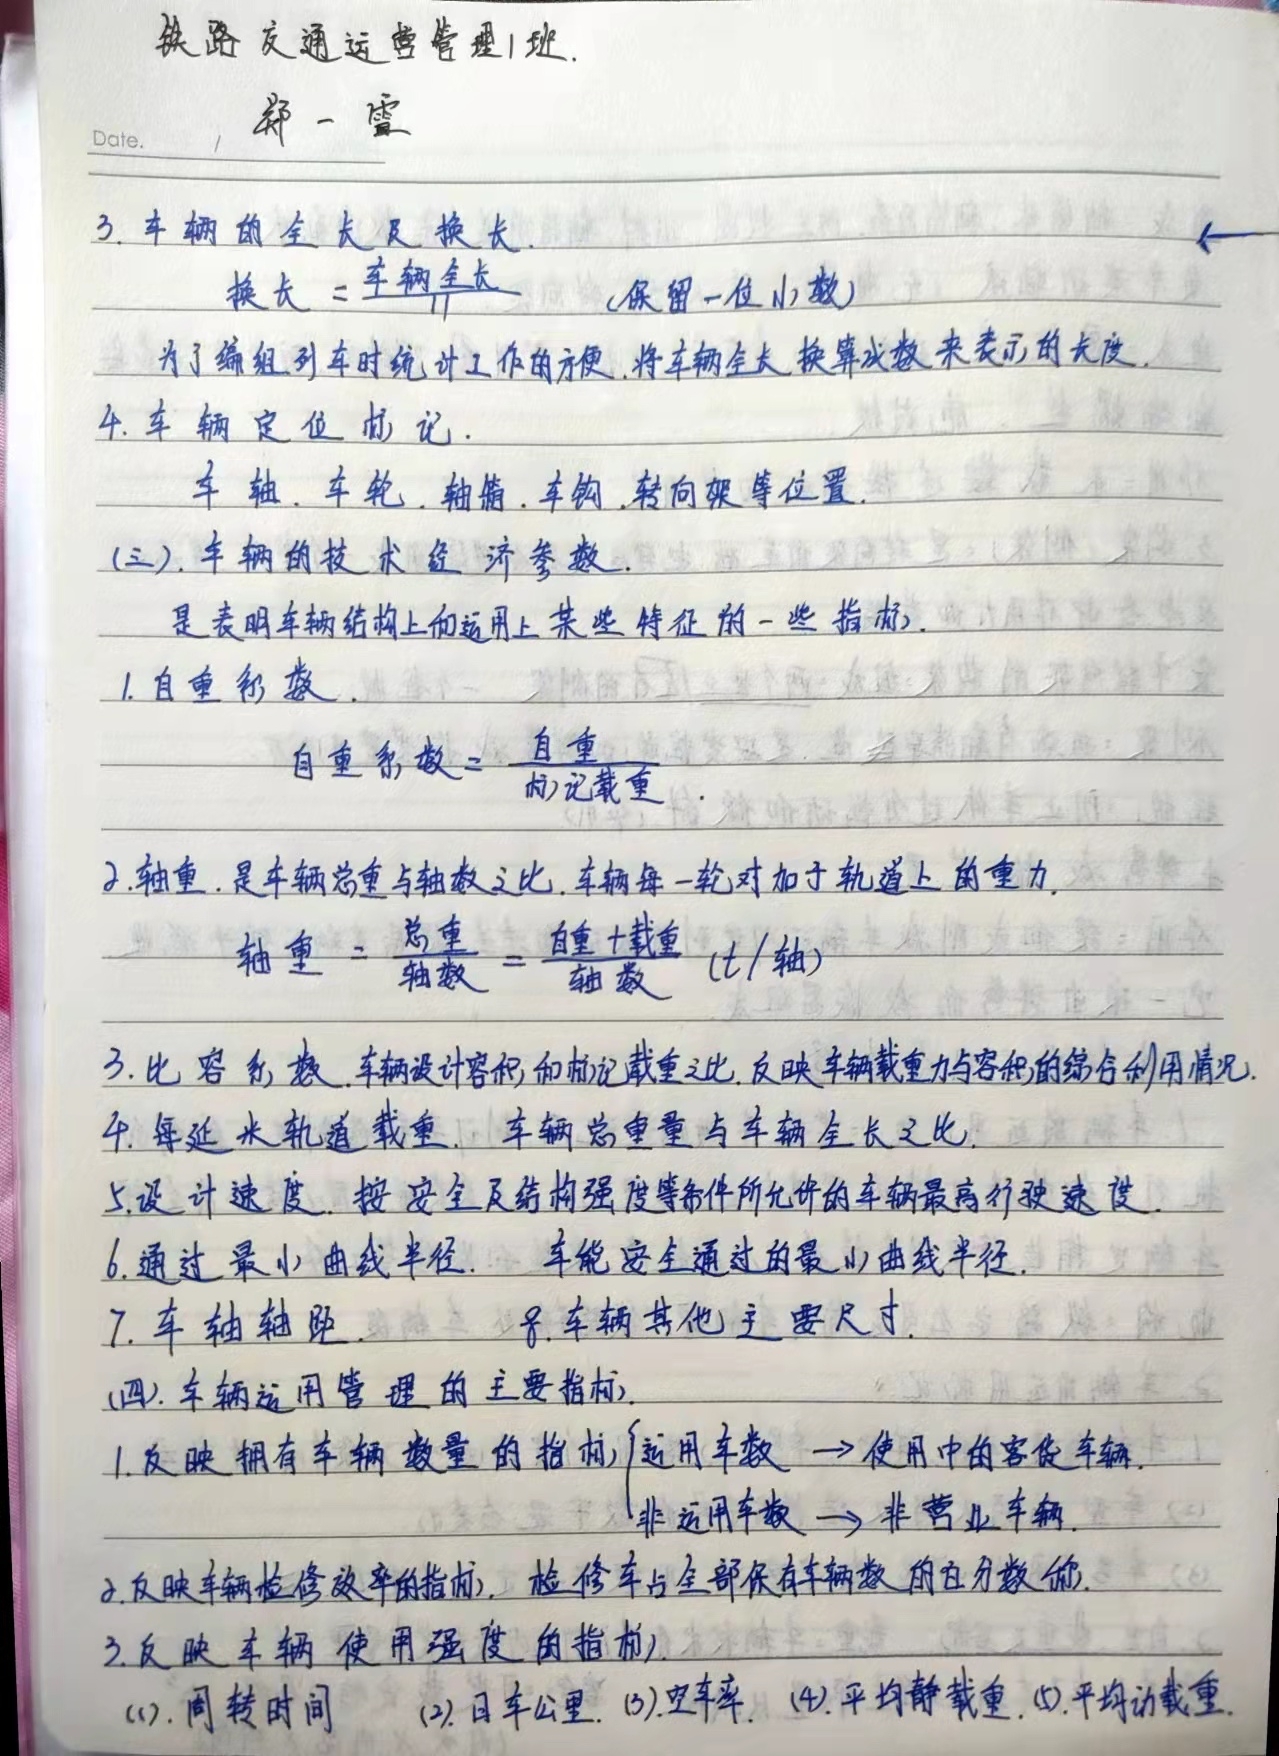 铁路交通运营管理1班.
郑一雪
Date. /
3. 车辆的全长及换长.
换长 = 车辆全长/11 (保留一位小数)
为了编组列车时统计工作的方便.将车辆全长换算成数来表示的长度.
4. 车辆定位标记.
车轴.车轮.轴箱.车钩.转向架等位置.
(三).车辆的技术经济参数.
是表明车辆结构上和运用上某些特征的一些指标.
1.自重系数.
自重系数 = 自重/标记载重.
2.轴重.是车辆总重与轴数之比.车辆每一轮对加于轨道上的重力.
轴重 = 总重/轴数 = 自重+载重/轴数 (t/轴)
3.比容系数.车辆设计容积和标记载重之比.反映车辆载重力与容积的综合利用情况.
4.每延米轨道载重. 车辆总重量与车辆全长之比.
5.设计速度.按安全及结构强度等条件所允许的车辆最高行驶速度.
6.通过最小曲线半径. 车能安全通过的最小曲线半径.
7.车轴轴距. 8.车辆其他主要尺寸.
(四).车辆运用管理的主要指标.
1.反映拥有车辆数量的指标{运用车数 → 使用中的客货车辆.
非运用车数 → 非营业车辆.
2.反映车辆检修效率的指标. 检修车占全部保有车辆数的百分数
3.反映车辆使用强度的指标.
(1).周转时间 (2).日车公里. (3).空车率. (4).平均静载重. (5).平均动载重.